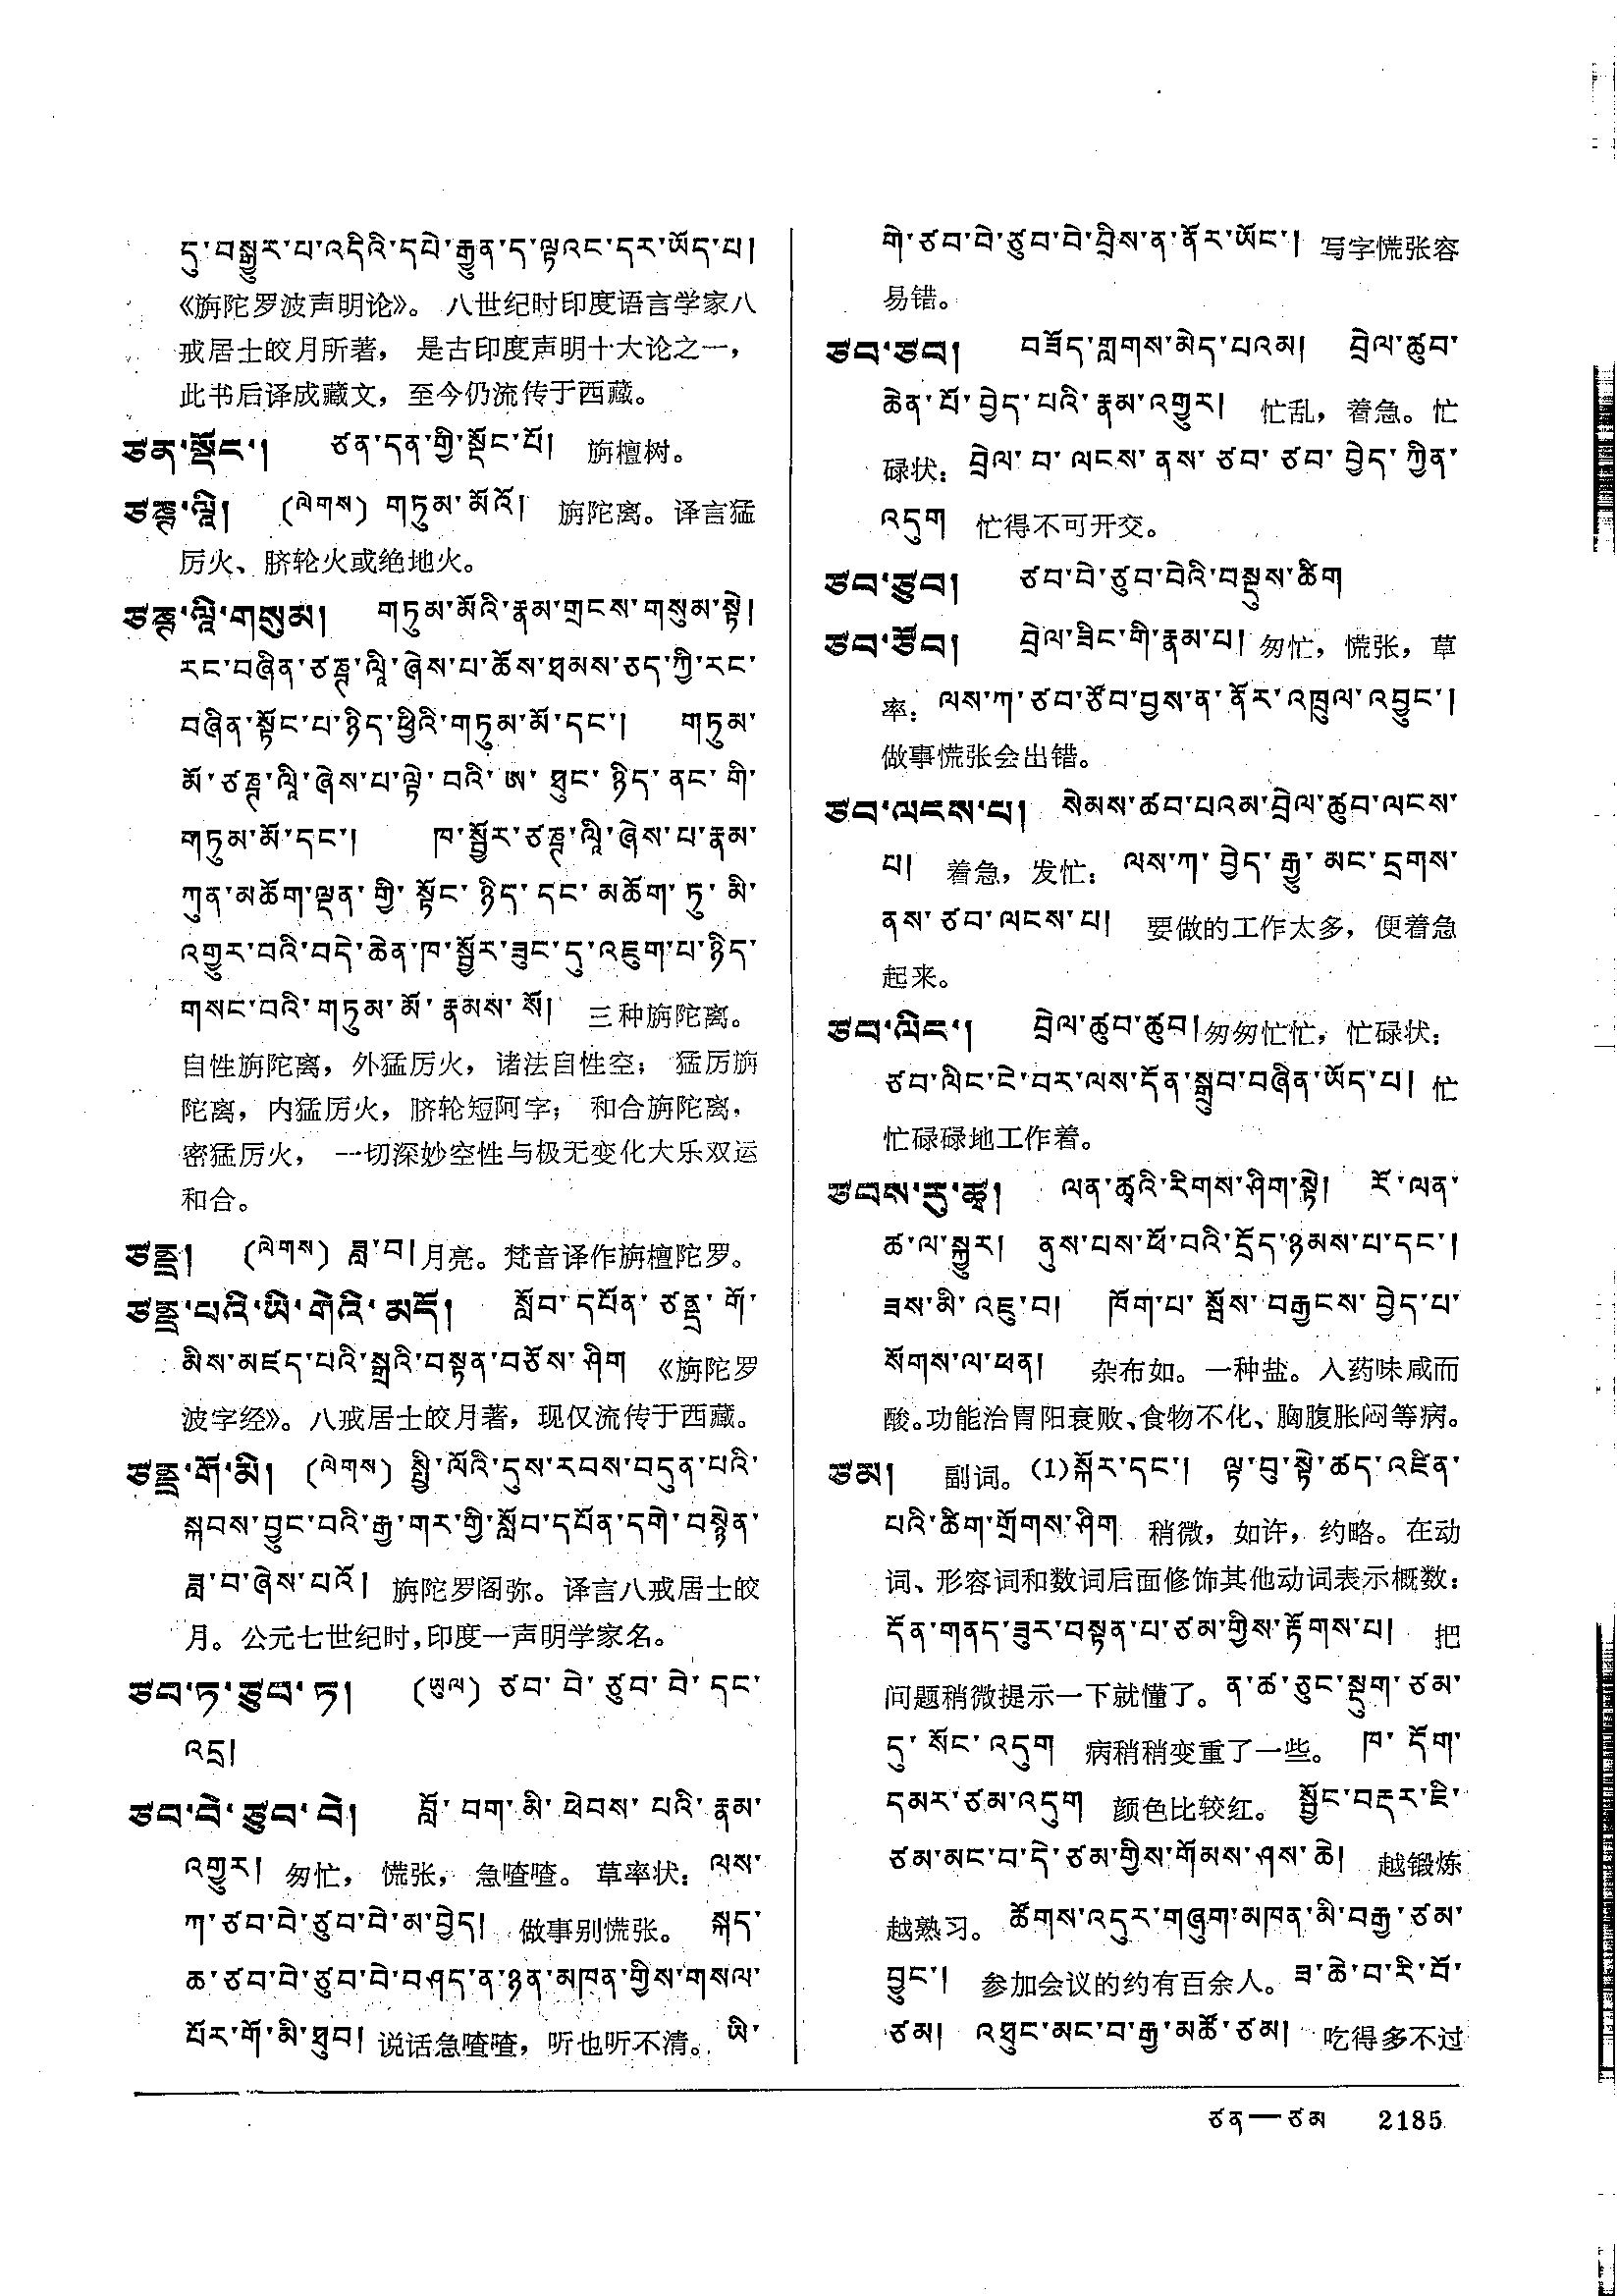 དུ་བསྒྱུར་པ་འདིའི་དཔེ་རྒྱུན་ད་ལྟའང་དར་ཡོད་པ།
《旃陀罗波声明论》。 八世纪时印度语言学家八
戒居士皎月所著， 是古印度声明十大论之一，
此书后译成藏文，至今仍流传于西藏。
ཙན་སྡོང་། ཙན་དན་གྱི་སྡོང་པོ། 旃檀树。
ཙཎྜ་ལཱི། (ལེགས) གཏུམ་མོའོ། 旃陀离。译言猛
厉火、脐轮火或绝地火。
ཙཎྜ་ལཱི་གསུམ། གཏུམ་མོའི་རྣམ་གྲངས་གསུམ་སྟེ།
རང་བཞིན་ཙཎྜ་ལཱི་ཞེས་པ་ཆོས་ཐམས་ཅད་ཀྱི་རང་
བཞིན་སྟོང་པ་ཉིད་ཕྱིའི་གཏུམ་མོ་དང་། གཏུམ་
མོ་ཙཎྜ་ལཱི་ཞེས་པ་ལྟེ་བའི་ཨ་ཐུང་ཉིད་ནང་གི་
གཏུམ་མོ་དང་། ཁ་སྦྱོར་ཙཎྜ་ལཱི་ཞེས་པ་རྣམ་
ཀུན་མཆོག་ལྡན་གྱི་སྟོང་ཉིད་དང་མཆོག་ཏུ་མི་
འགྱུར་བའི་བདེ་ཆེན་ཁ་སྦྱོར་ཟུང་དུ་འཇུག་པ་ཉིད་
གསང་བའི་གཏུམ་མོ་རྣམས་སོ། 三种旃陀离。
自性旃陀离，外猛厉火，诸法自性空； 猛厉旃
陀离，内猛厉火，脐轮短阿字； 和合旃陀离，
密猛厉火， 一切深妙空性与极无变化大乐双运
和合。
ཙནྡྲ། (ལེགས) ཟླ་བ། 月亮。梵音译作旃檀陀罗。
ཙནྡྲ་པའི་ཡི་གེའི་མདོ། སློབ་དཔོན་ཙནྡྲ་གོ་
མིས་མཛད་པའི་སྒྲའི་བསྟན་བཅོས་ཤིག 《旃陀罗
波字经》。八戒居士皎月著，现仅流传于西藏。
ཙནྡྲ་གོ་མི། (ལེགས) སྤྱི་ལོའི་དུས་རབས་བདུན་པའི་
སྐབས་བྱུང་བའི་རྒྱ་གར་གྱི་སློབ་དཔོན་དགེ་བསྙེན་
ཟླ་བ་ཞེས་པའོ། 旃陀罗阁弥。译言八戒居士皎
月。公元七世纪时，印度一声明学家名。
ཙབ་ཏ་ཙུབ་ཏ། (ཡུལ) ཙབ་བེ་ཙུབ་བེ་དང་
འདྲ།
ཙབ་བེ་ཙུབ་བེ། བློ་བག་མི་ཕེབས་པའི་རྣམ་
འགྱུར། 匆忙， 慌张， 急喳喳。 草率状：ལས་
ཀ་ཙབ་བེ་ཙུབ་བེ་མ་བྱེད། 做事别慌张。 སྐད་
ཆ་ཙབ་བེ་ཙུབ་བེ་བཤད་ན་ཉན་མཁན་གྱིས་གསལ་
པོར་གོ་མི་ཐུབ། 说话急喳喳，听也听不清。ཡི་
གེ་ཙབ་བེ་ཙུབ་བེ་བྲིས་ན་ནོར་ཡོང་། 写字慌张容
易错。
ཙབ་ཙབ། བཟོད་གླགས་མེད་པའམ། བྲེལ་ཚུབ་
ཆེན་པོ་བྱེད་པའི་རྣམ་འགྱུར། 忙乱，着急。忙
碌状：བྲེལ་བ་ལངས་ནས་ཙབ་ཙབ་བྱེད་ཀྱིན་
འདུག 忙得不可开交。
ཙབ་ཙུབ། ཙབ་བེ་ཙུབ་བེའི་བསྡུས་ཚིག
ཙབ་ཙོབ། བྲེལ་ཟིང་གི་རྣམ་པ། 匆忙，慌张，草
率：ལས་ཀ་ཙབ་ཙོབ་བྱས་ན་ནོར་འཁྲུལ་འབྱུང་།
做事慌张会出错。
ཙབ་ལངས་པ། སེམས་ཚབ་པའམ་བྲེལ་ཚུབ་ལངས་
པ། 着急，发忙：ལས་ཀ་བྱེད་རྒྱུ་མང་དྲགས་
ནས་ཙབ་ལངས་པ། 要做的工作太多，便着急
起来。
ཙབ་ལིང་། བྲེལ་ཚུབ་ཚུབ། 匆匆忙忙，忙碌状：
ཙབ་ལིང་ངེ་བར་ལས་དོན་སྒྲུབ་བཞིན་ཡོད་པ། 忙
忙碌碌地工作着。
ཙབས་རུ་ཚྭ། ལན་ཚྭའི་རིགས་ཤིག་སྟེ། རོ་ལན་
ཚ་ལ་སྐྱུར། ནུས་པས་ཕོ་བའི་དྲོད་ཉམས་པ་དང་།
ཟས་མི་འཇུ་བ། ཁོག་པ་སྦོས་བརྒྱངས་བྱེད་པ་
སོགས་ལ་ཕན། 杂布如。一种盐。入药味咸而
酸。功能治胃阳衰败、食物不化、胸腹胀闷等病。
ཙམ། 副词。(1)སྐོར་དང་། ལྟ་བུ་སྟེ་ཚད་འཛིན་
པའི་ཚིག་གྲོགས་ཤིག 稍微，如许，约略。在动
词、形容词和数词后面修饰其他动词表示概数：
དོན་གནད་ཟུར་བསྟན་པ་ཙམ་གྱིས་རྟོགས་པ། 把
问题稍微提示一下就懂了。ན་ཚ་ཅུང་སྡུག་ཙམ་
དུ་སོང་འདུག 病稍稍变重了一些。 ཁ་དོག་
དམར་ཙམ་འདུག 颜色比较红。 སྦྱོང་བརྡར་ཇི་
ཙམ་མང་བ་དེ་ཙམ་གྱིས་གོམས་ཤས་ཆེ། 越锻炼
越熟习。 ཚོགས་འདུར་གཞུག་མཁན་མི་བརྒྱ་ཙམ་
བྱུང་། 参加会议的约有百余人。ཟ་ཆེ་བ་རི་བོ་
ཙམ། འཐུང་མང་བ་རྒྱ་མཚོ་ཙམ། 吃得多不过
ཙན—ཙམ 2185